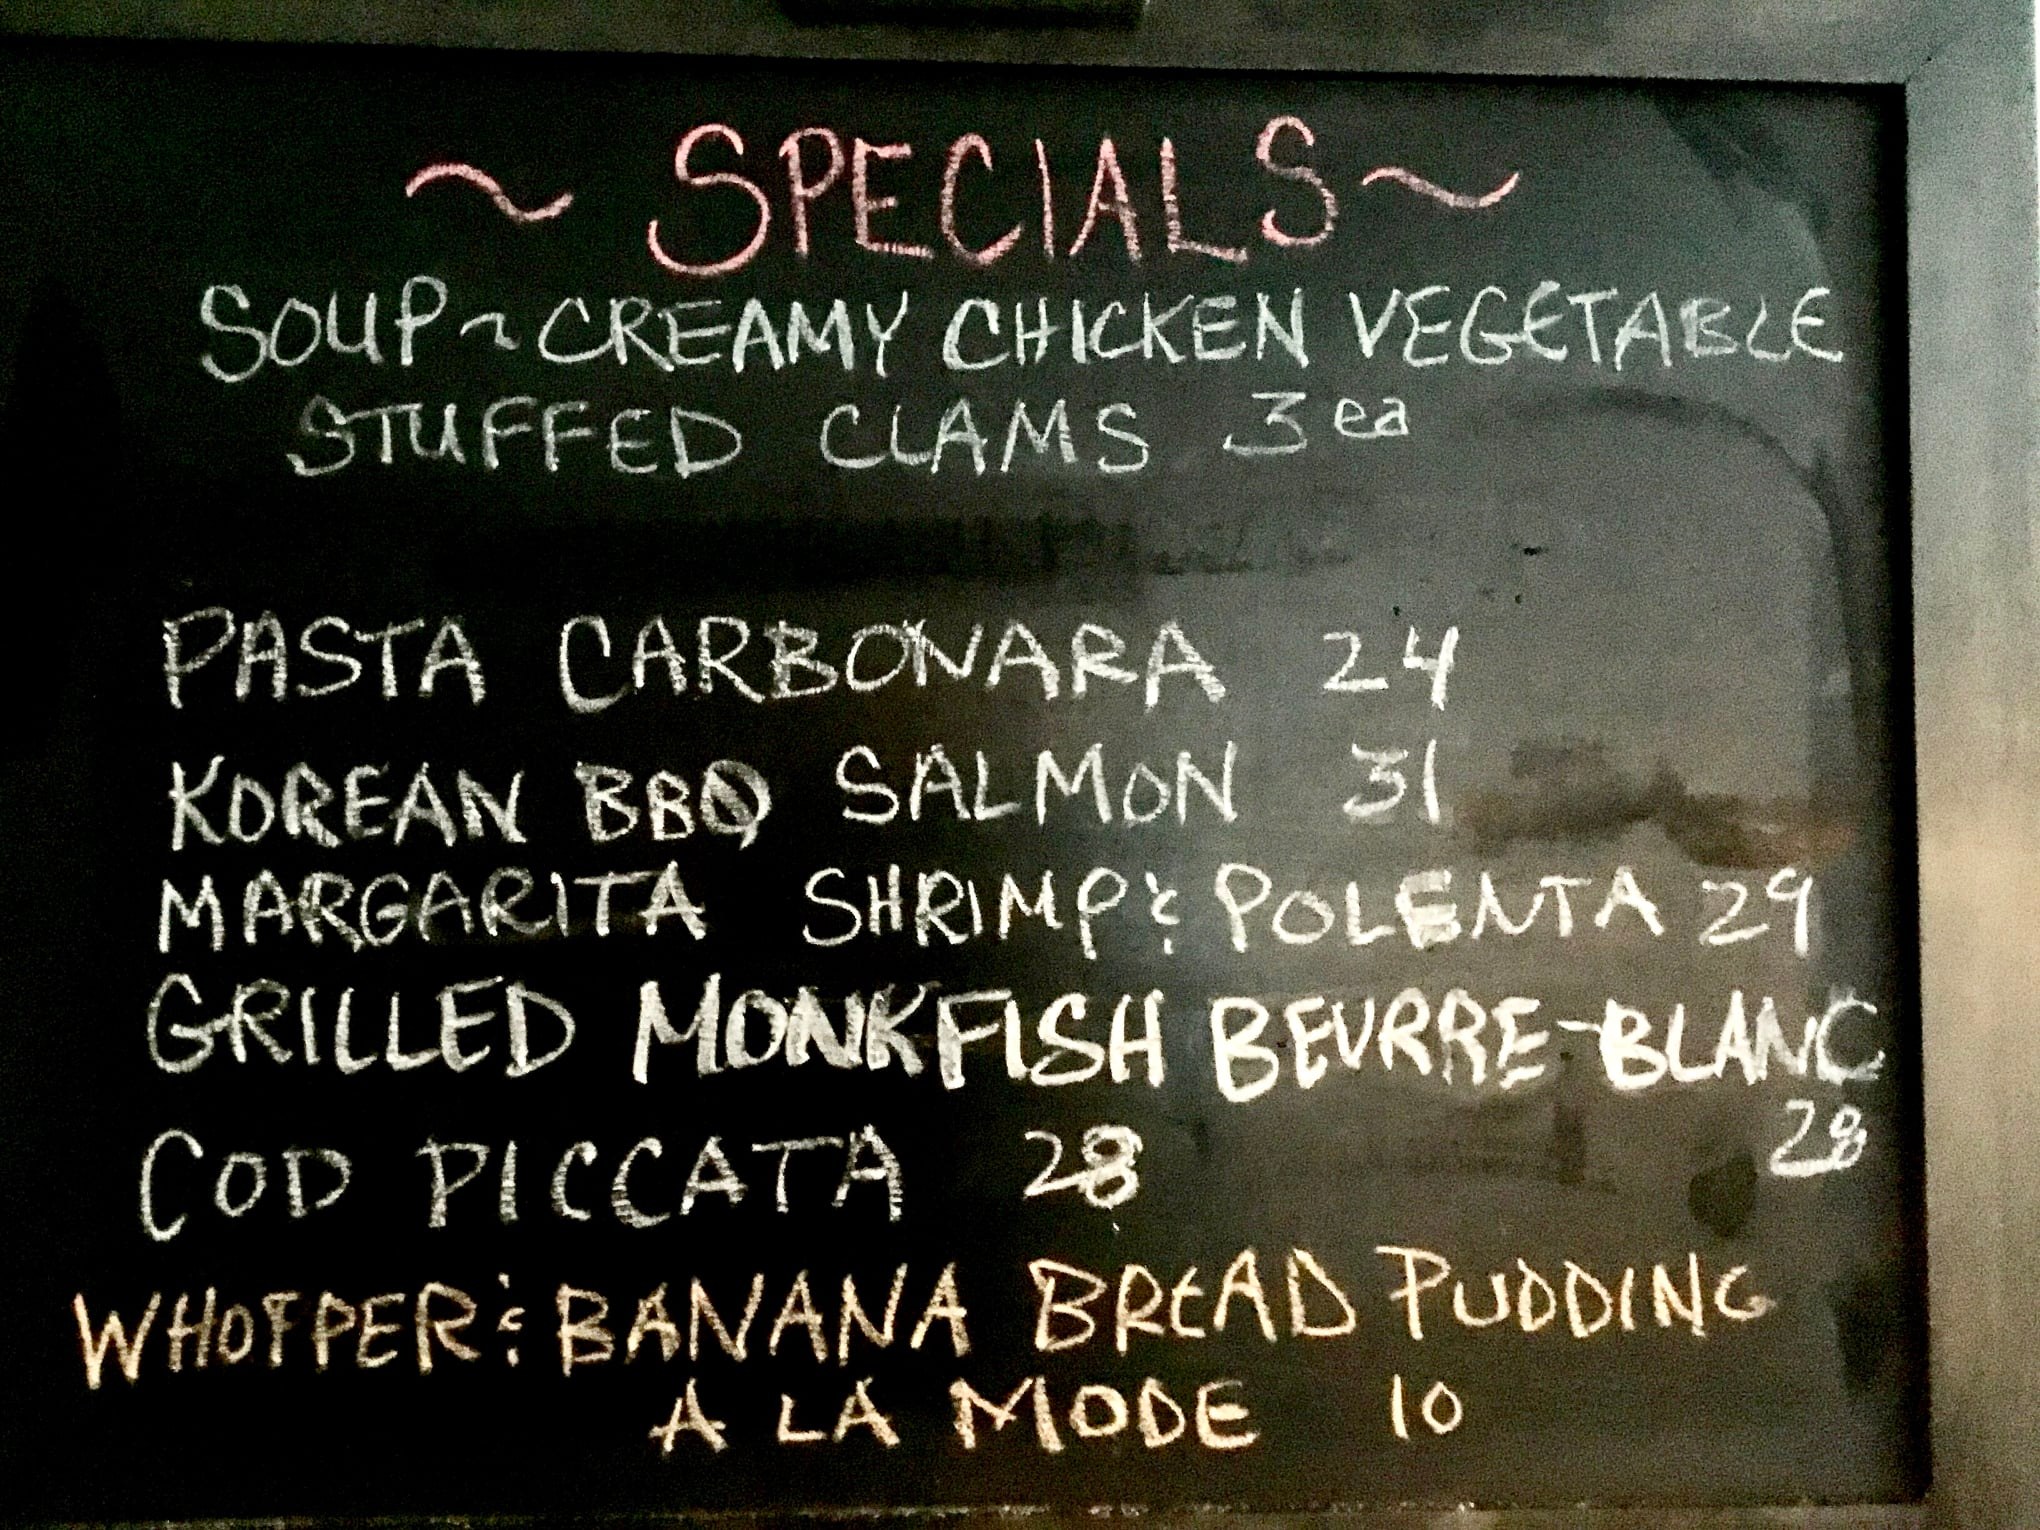 ~ SPECIALS ~
SOUP ~ CREAMY CHICKEN VEGETABLE
STUFFED CLAMS 3 ea
PASTA CARBONARA 24
KOREAN BBQ SALMON 31
MARGARITA SHRIMP & POLENTA 29
GRILLED MONKFISH BEURRE-BLANC
28
COD PICCATA 28
WHOPPER & BANANA BREAD PUDDING
A LA MODE 10